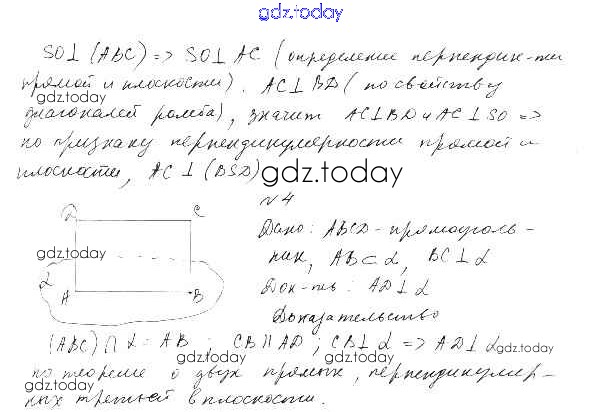 gdz.today
SO⊥(ABC) => SO⊥AC (определение перпендик-ти
прямой и плоскости). AC⊥BD (по свойству
gdz.today
диагоналей ромба), значит AC⊥BD и AC⊥SO =>
по признаку перпендикулярности прямой и
плоскости, AC⊥(BSD)
gdz.today
N4
D C
Дано: ABCD - прямоуголь-
gdz.today
ник, AB⊂α, BC⊥α
α
A B
Док-ть: AD⊥α
gdz.today
Доказательство
(ABC)∩α=AB; CB||AD; CB⊥α => AD⊥α
gdz.today gdz.today gdz.today
по теореме о двух прямых, перпендикуляр-
ных третьей в плоскости.